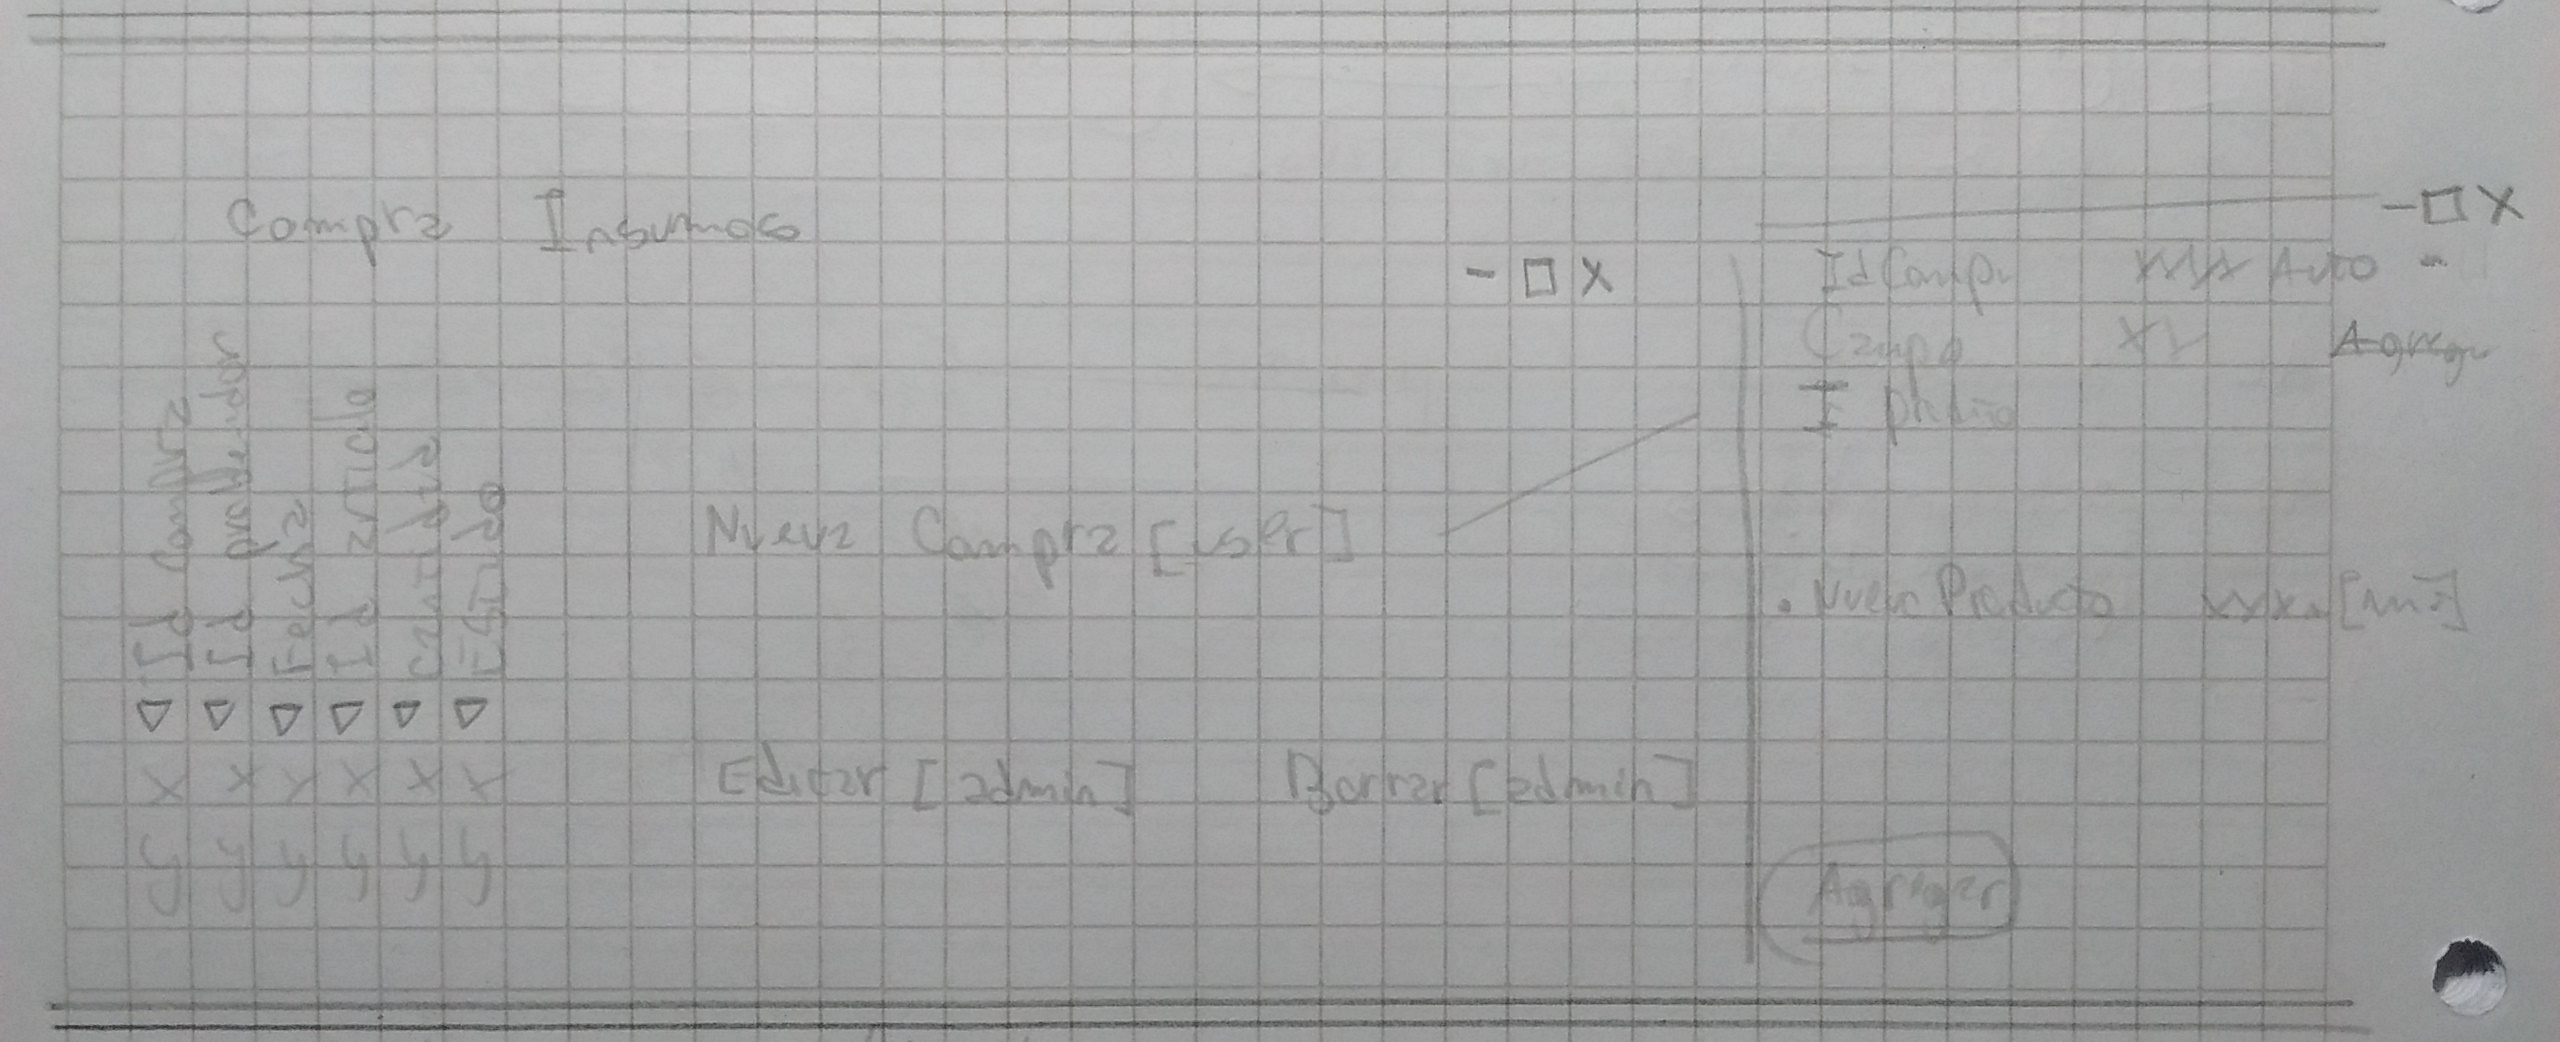 Compra Insumos
- □ X
Id Compra
Id proveedor
Fecha
Id articulo
Cantidad
Estado
▽ ▽ ▽ ▽ ▽ ▽
x x x x x x
y y y y y y
Nueva Compra [user]
Editar [admin] Borrar [admin]
- □ X
Id Compr xxxx Auto -
Campo
Nuevo Producto xxxx
Agregar